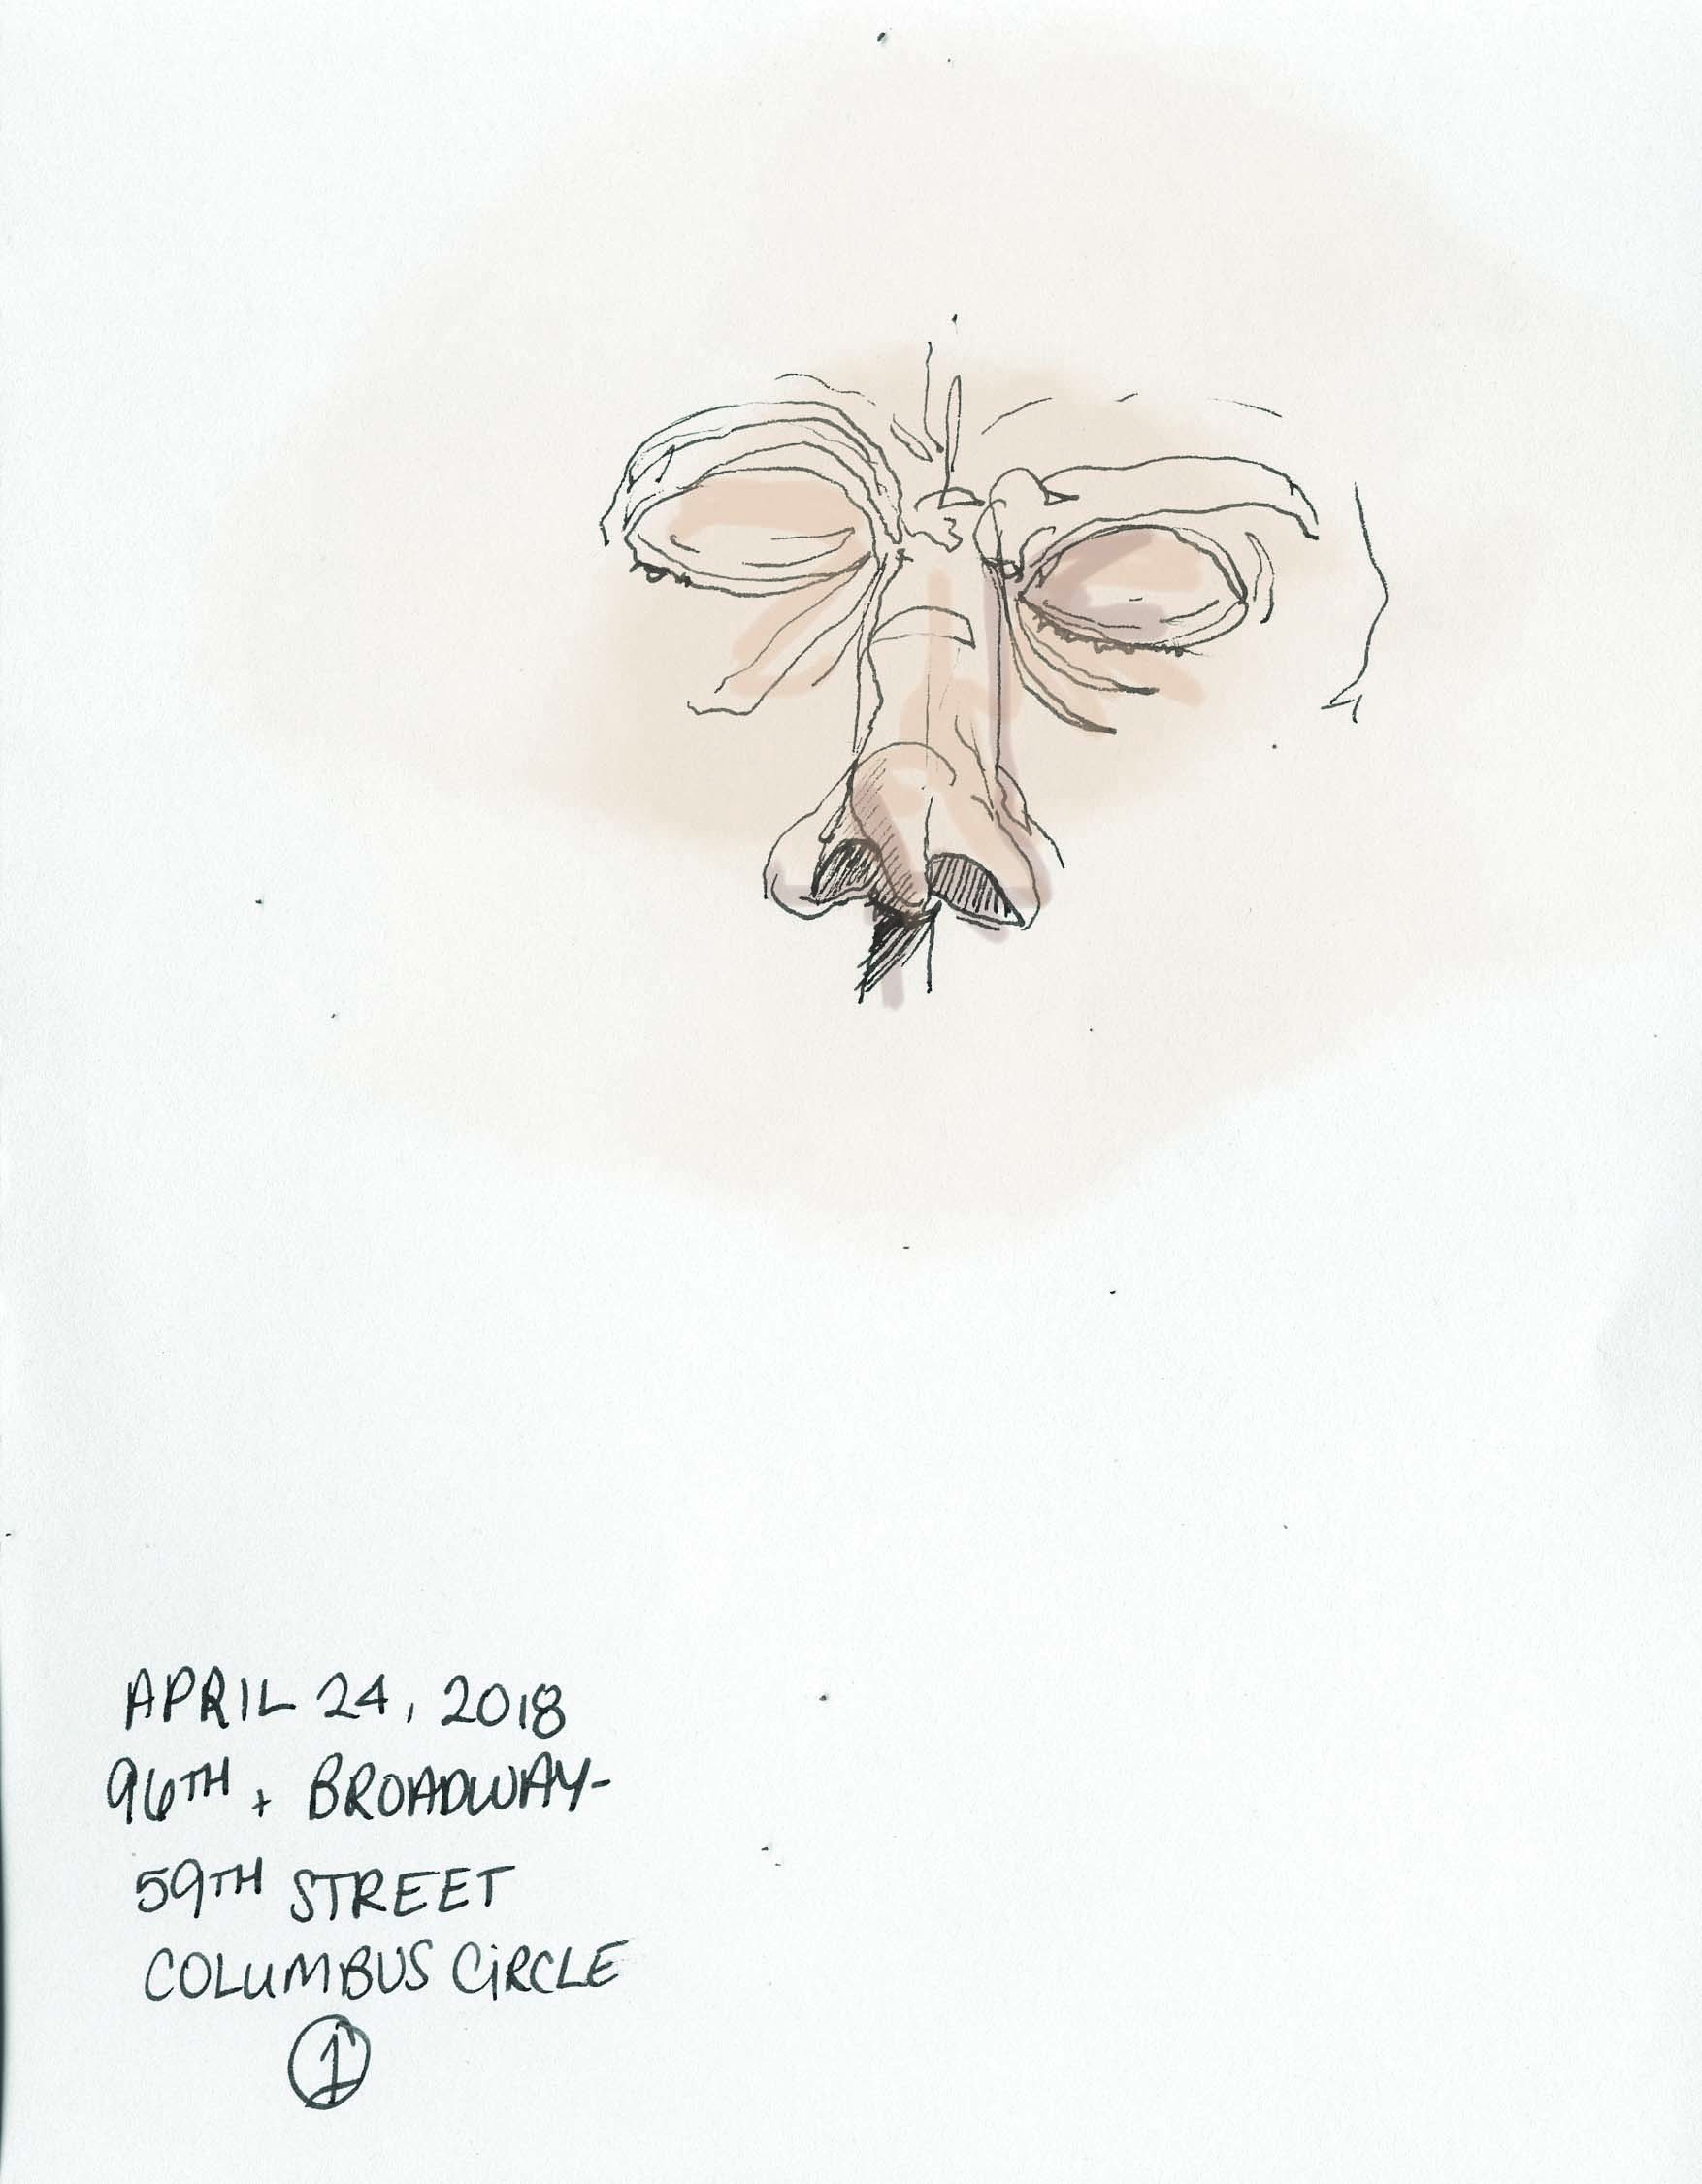 APRIL 24, 2018
96TH + BROADWAY-
59TH STREET
COLUMBUS CiRCLE
1